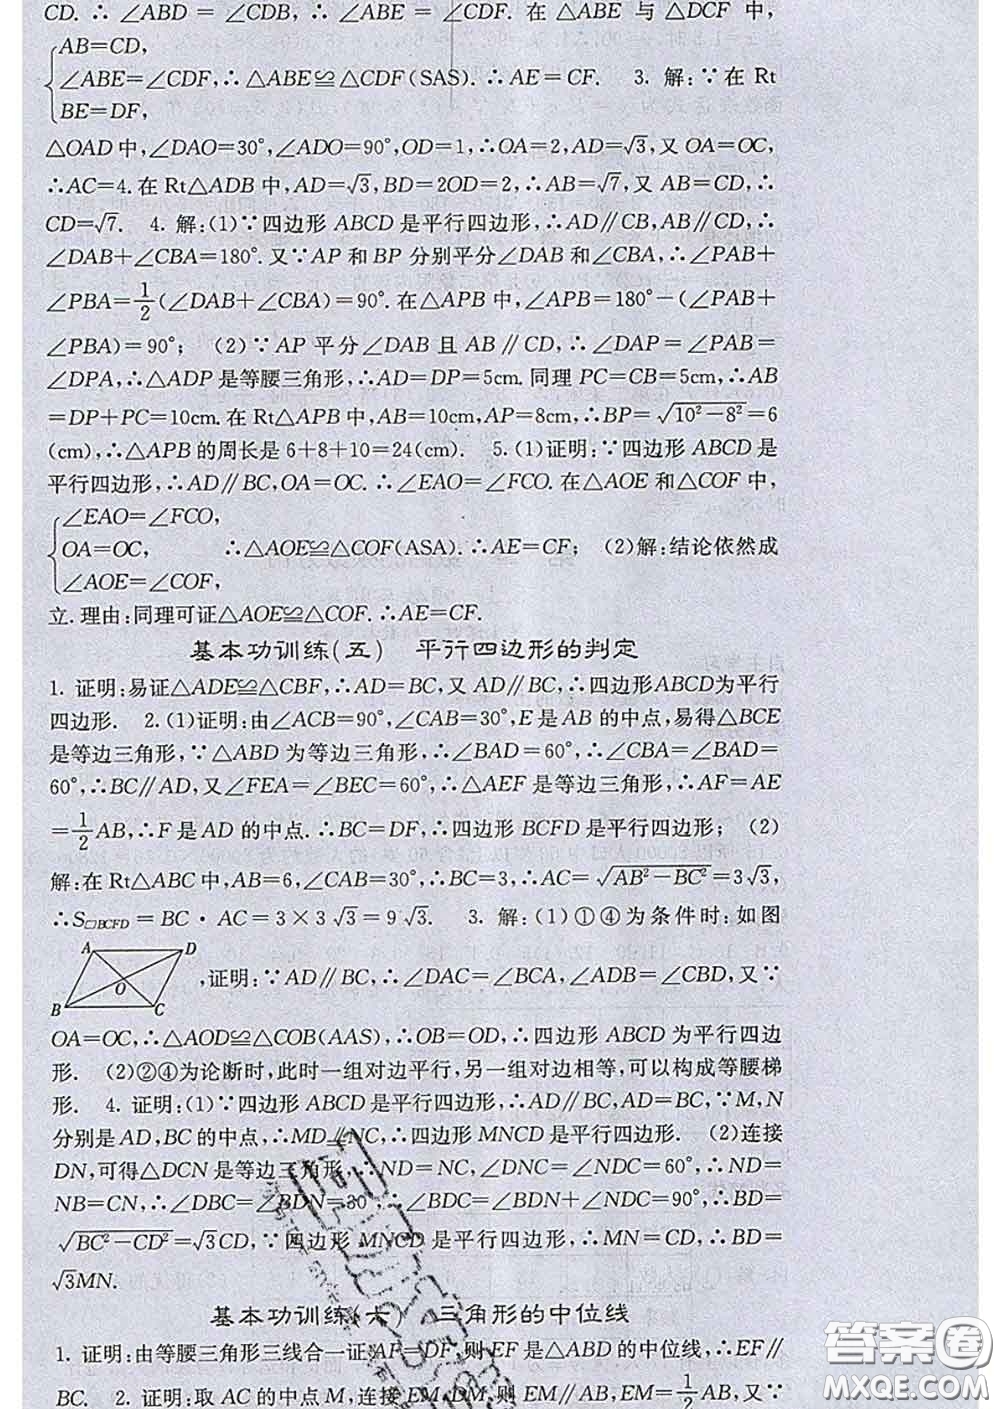 CD.∴∠ABD=∠CDB,∴∠ABE=∠CDF.在△ABE与△DCF中,
AB=CD,
∠ABE=∠CDF,∴△ABE≌△CDF(SAS).∴AE=CF. 3. 解:∵在Rt
BE=DF,
△OAD中,∠DAO=30°,∠ADO=90°,OD=1,∴OA=2,AD=√3,又OA=OC,
∴AC=4.在Rt△ADB中,AD=√3,BD=2OD=2,∴AB=√7,又AB=CD,∴
CD=√7. 4. 解:(1)∵四边形ABCD是平行四边形,∴AD∥CB,AB∥CD,∴
∠DAB+∠CBA=180°.又∵AP和BP分别平分∠DAB和∠CBA,∴∠PAB+
∠PBA=1/2(∠DAB+∠CBA)=90°.在△APB中,∠APB=180°-(∠PAB+
∠PBA)=90°; (2)∵AP平分∠DAB且AB∥CD,∴∠DAP=∠PAB=
∠DPA,∴△ADP是等腰三角形,∴AD=DP=5cm.同理PC=CB=5cm,∴AB
=DP+PC=10cm.在Rt△APB中,AB=10cm,AP=8cm,∴BP=√(10²-8²)=6
(cm),∴△APB的周长是6+8+10=24(cm). 5.(1)证明:∵四边形ABCD是
平行四边形,∴AD∥BC,OA=OC.∴∠EAO=∠FCO.在△AOE和△COF中,
∠EAO=∠FCO,
OA=OC, ∴△AOE≌△COF(ASA).∴AE=CF; (2)解:结论依然成
∠AOE=∠COF,
立.理由:同理可证△AOE≌△COF.∴AE=CF.
基本功训练(五) 平行四边形的判定
1. 证明:易证△ADE≌△CBF,∴AD=BC,又AD∥BC,∴四边形ABCD为平行
四边形. 2.(1)证明:由∠ACB=90°,∠CAB=30°,E是AB的中点,易得△BCE
是等边三角形,∵△ABD为等边三角形,∴∠BAD=60°.∴∠CBA=∠BAD=
60°,∴BC∥AD,又∠FEA=∠BEC=60°,∴△AEF是等边三角形,∴AF=AE
=1/2AB,∴F是AD的中点.∴BC=DF,∴四边形BCFD是平行四边形; (2)
解:在Rt△ABC中,AB=6,∠CAB=30°,∴BC=3,∴AC=√(AB²-BC²)=3√3,
∴S□BCFD=BC·AC=3×3√3=9√3. 3. 解:(1)①④为条件时:如图
A D
O ,证明:∵AD∥BC,∴∠DAC=∠BCA,∠ADB=∠CBD,又∵
B C
OA=OC,∴△AOD≌△COB(AAS),∴OB=OD,∴四边形ABCD为平行四边
形. (2)②④为论断时,此时一组对边平行,另一组对边相等,可以构成等腰梯
形. 4. 证明:(1)∵四边形ABCD是平行四边形,∴AD∥BC,AD=BC,∵M,N
分别是AD,BC的中点,∴MD∥NC,∴四边形MNCD是平行四边形. (2)连接
DN,可得△DCN是等边三角形,∴ND=NC,∠DNC=∠NDC=60°,∴ND=
NB=CN,∴∠DBC=∠BDN=30°,∴∠BDC=∠BDN+∠NDC=90°,∴BD=
√(BC²-CD²)=√3CD,∵四边形MNCD是平行四边形,∴MN=CD,∴BD=
√3MN.
基本功训练(六) 三角形的中位线
1. 证明:由等腰三角形三线合一证AF=DF,则EF是△ABD的中位线,∴EF∥
BC. 2. 证明:取AC的中点M,连接EM,DM,则EM∥AB,EM=1/2AB,又∵
答案圈
MXQE.COM